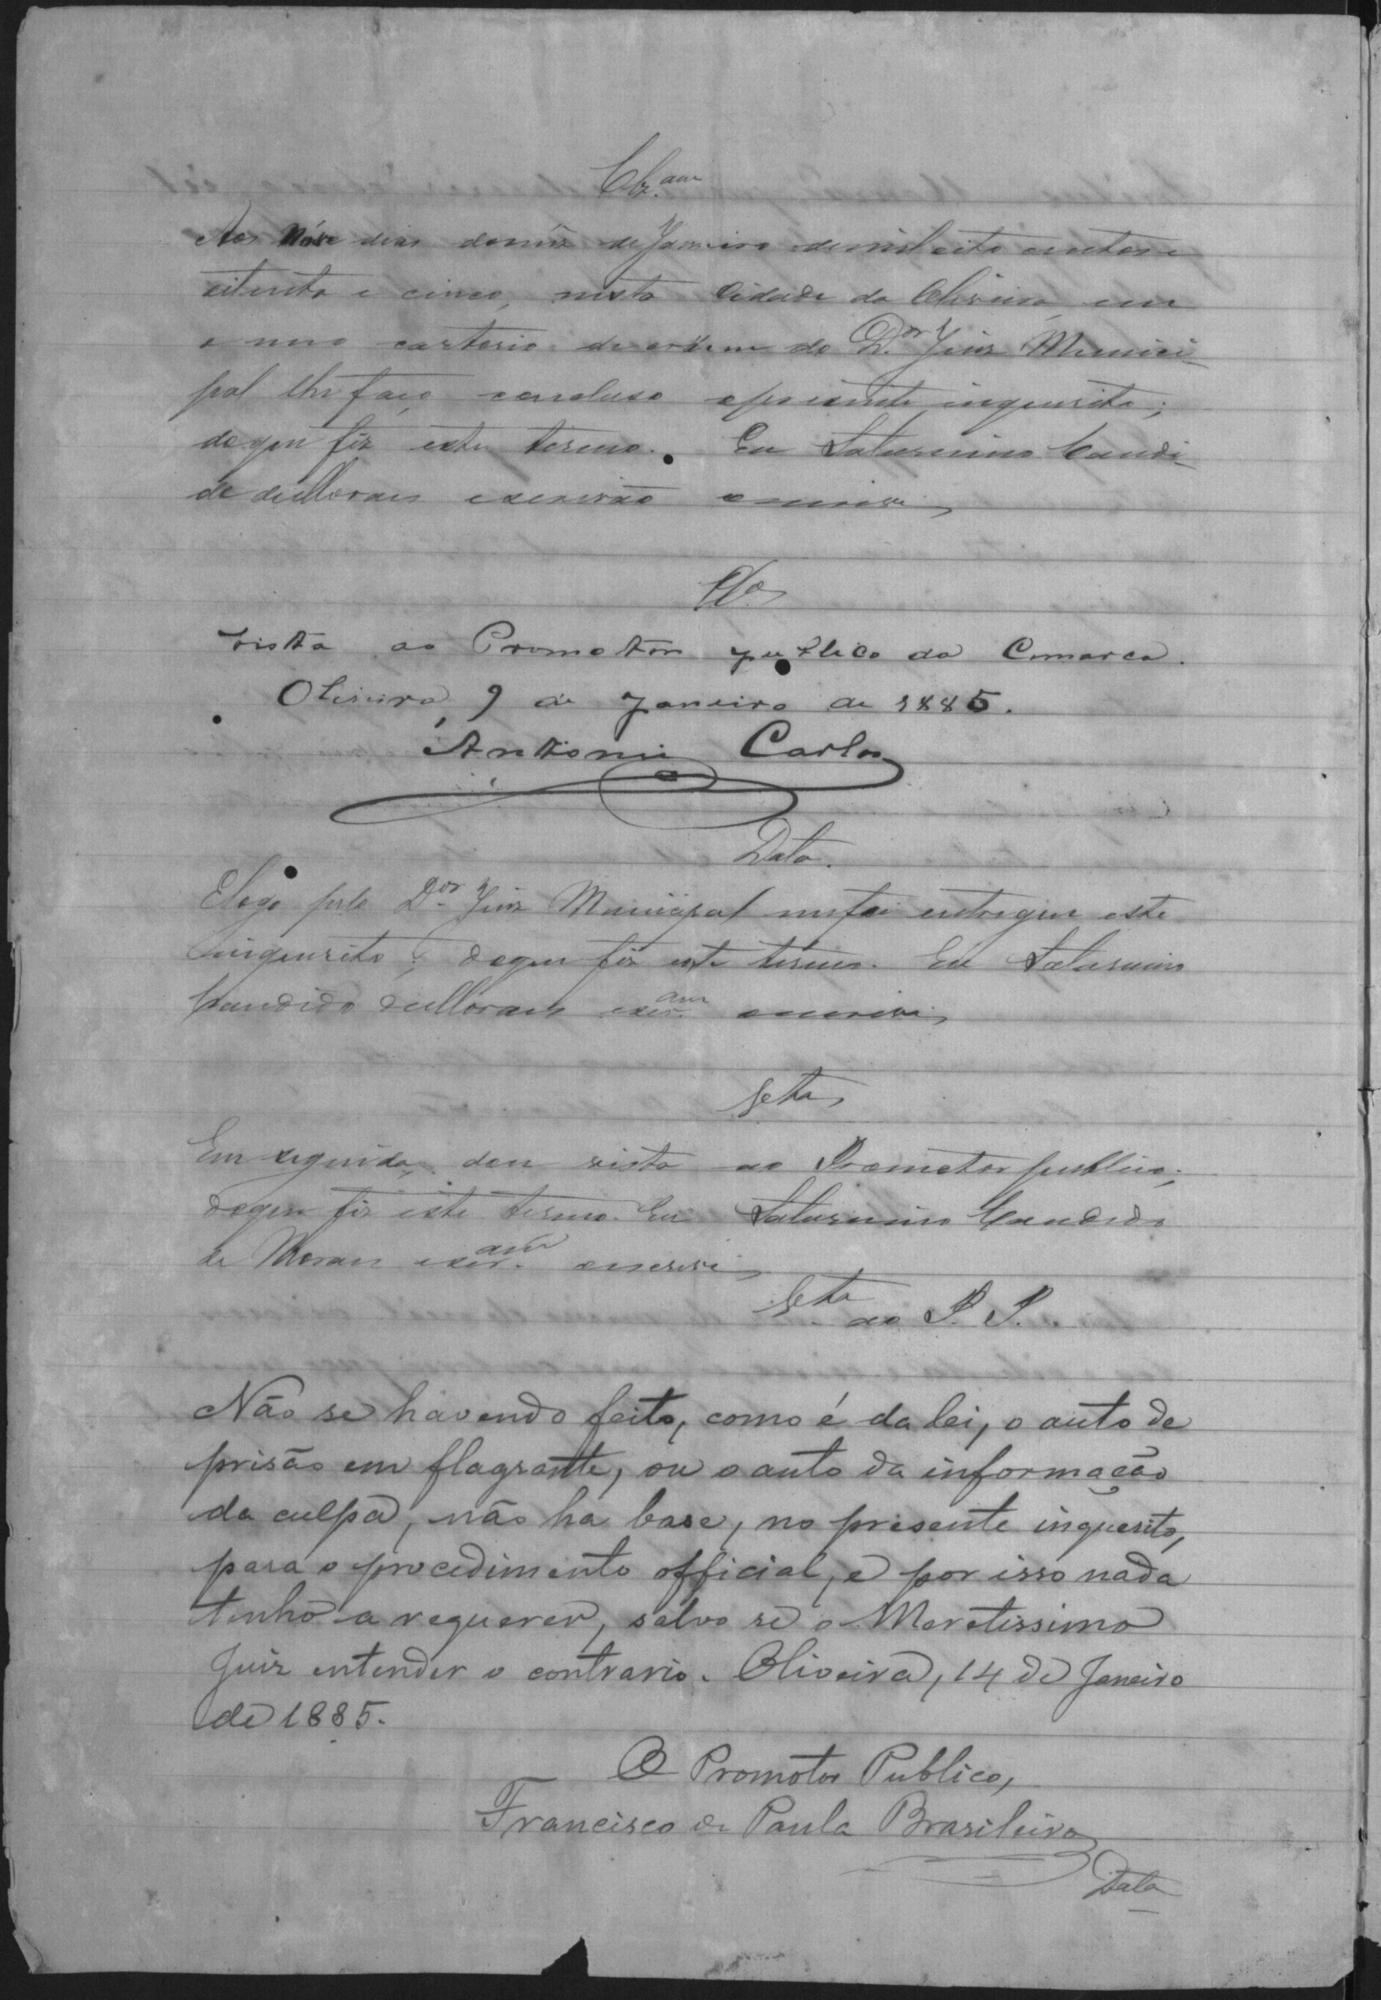 Clz.am
Aos Nove dias do mez de Janeiro de mil oito centos e
oitenta e cinco, nesta Cidade da Oliveira em
o meu cartorio de ordem do D.or Juiz Munici-
pal lhe faço concluso o presente inquerito;
do que fiz este termo. Eu Saturnino Candi-
do de Moraes escrivão escrevi
Clos
Vista ao Promotor publico da Comarca.
Oliveira, 9 de Janeiro de 1885.
Antonio Carlos
Data.
E logo pelo D.or Juiz Municipal me foi entregue este
inquerito; do que fiz este termo. Eu Saturnino
Candido de Moraes escr.am escrevi
Em seguida, dou vista ao Promotor publico;
do que fiz este termo. Eu Saturnino Candido
de Moraes escr.am escrevi
ao P. P.
Não se havendo feito, como é da lei, o auto de
prisão em flagrante, ou o auto da informação
da culpa, não ha base, no presente inquerito,
para o procedimento official, e por isso nada
tenho a requerer, salvo se o Meretissimo
Juiz entender o contrario. Oliveira, 14 de Janeiro
de 1885.
O Promotor Publico,
Francisco de Paula Brasileiro
Data